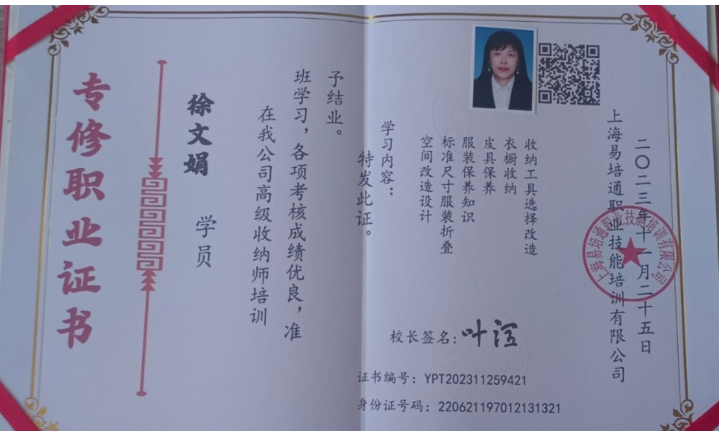 专修职业证书
徐文娟 学员
在我公司高级收纳师培训
班学习，各项考核成绩优良，准
予结业。
特发此证。
学习内容：
收纳工具选择改造
衣橱收纳
皮具保养
服装保养知识
标准尺寸服装折叠
空间改造设计
上海易培通职业技能培训有限公司
二〇二三年十一月二十五日
上海易培通职业技能培训有限公司
校长签名：叶
证书编号：YPT202311259421
身份证号码：220621197012131321